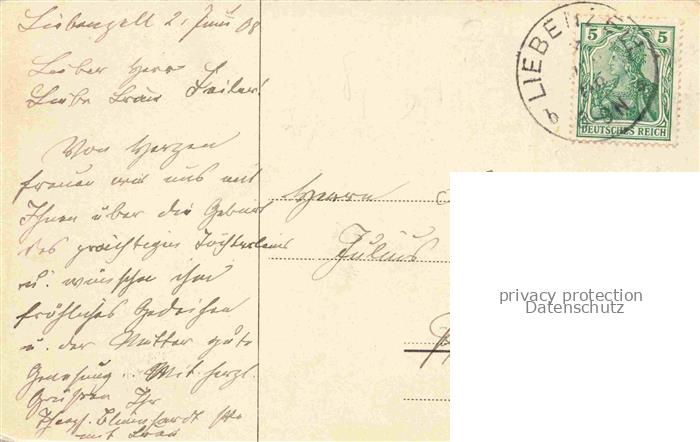 Liebenzell 2. Juni 08
Lieber Herr
Liebe Frau
Von Herzen
freuen wir uns mit
Ihnen über die Geburt
des prächtigen Töchterleins
u. wünschen ihm
fröhliches Gedeihen
u. der Mutter gute
Genesung. Mit herzl.
Grüssen Ihr
Blumhardt
mit Frau
LIEBENZELL
5 5
DEUTSCHES REICH
Herrn
Julius
privacy protection
Datenschutz